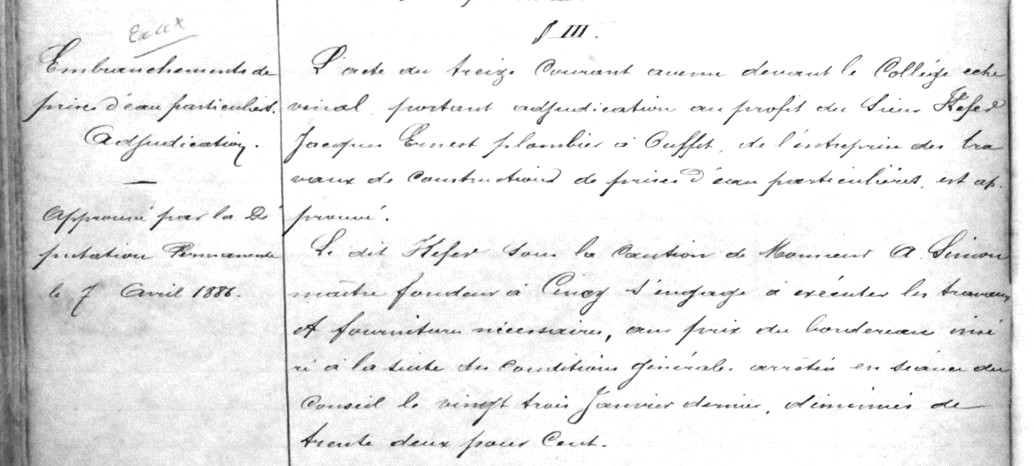 Eaux
Embranchements de
prises d'eau particulières.
Adjudication.
Approuvé par la Dé
putation Permanente
le 7 Avril 1886.
§ III.
L'acte du treize courant avenu devant le Collège éche
vinal, portant adjudication au profit du Sieur Kefer
Jacques Ernest plombier à Ouffet, de l'entreprise des tra
vaux de constructions de prises d'eau particulières, est ap-
prouvé.
Le dit Kefer sous la caution de Monsieur A. Simon
maître fondeur à Ciney s'engage à exécuter les travaux
et fournitures nécessaires, aux prix du bordereau insé
ré à la suite des conditions générales arrêtées en séance du
Conseil le vingt trois Janvier dernier, diminués de
trente deux pour Cent.